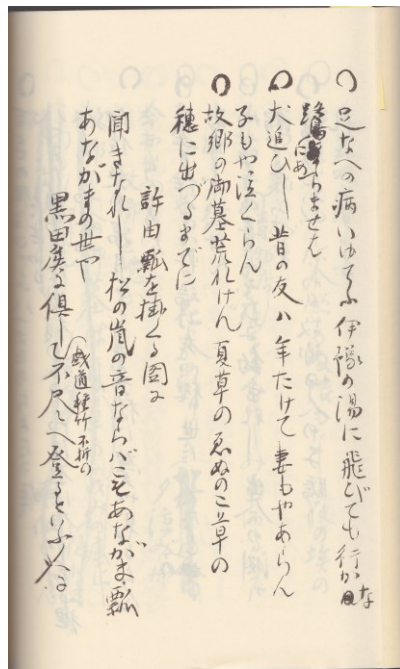 ○ 足なへの病いゆてふ伊豫の湯に飛びても行かな
鷺にあらませば
○ 犬追ひし昔の友ハ年たけて妻もやあらん
子もや泣くらん
○ 故郷の御墓荒れけん夏草のゑぬのこ草の
穂に出づるまでに
許由瓢を掛くる図に
聞きなれし松の嵐の音ならバこそあながま瓢
あながまの世や
黒田
倶して不尽へ登るといふ人に